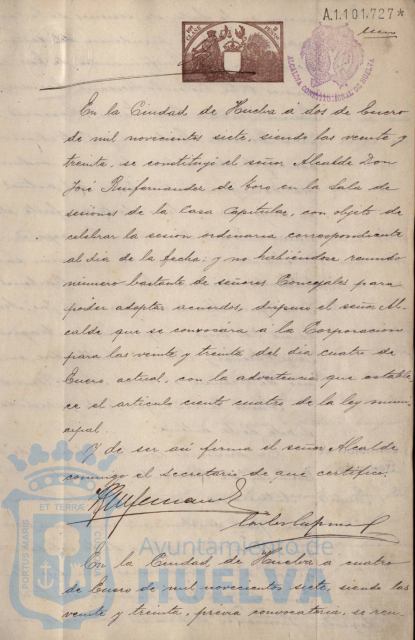 A.1.101.727*
ALCALDIA CONSTITUCIONAL DE HUELVA
En la Ciudad de Huelva á dos de Enero
de mil novecientos siete, siendo las veinte y
treinta, se constituyó el señor Alcalde Don
José Ruifernandez de Toro en la Sala de
sesiones de la Casa Capitular, con objeto de
celebrar la sesion ordinaria correspondiente
al dia de la fecha; y no habiéndose reunido
numero bastante de señores Concejales para
poder adoptar acuerdos, dispuso el señor Al-
calde que se convocara á la Corporacion
para las veinte y treinta del dia cuatro de
Enero actual, con la advertencia que estable-
ce el articulo ciento cuatro de la ley muni-
cipal.
Y de ser asi firma el señor Alcalde
conmigo el Secretario de que certifico.
En la Ciudad, de Huelva a cuatro
de Enero de mil novecientos siete, siendo las
veinte y treinta, previa convocatoria, se reu-
PORTUS MARIS
ET TERRAE
Ayuntamiento de
HUELVA